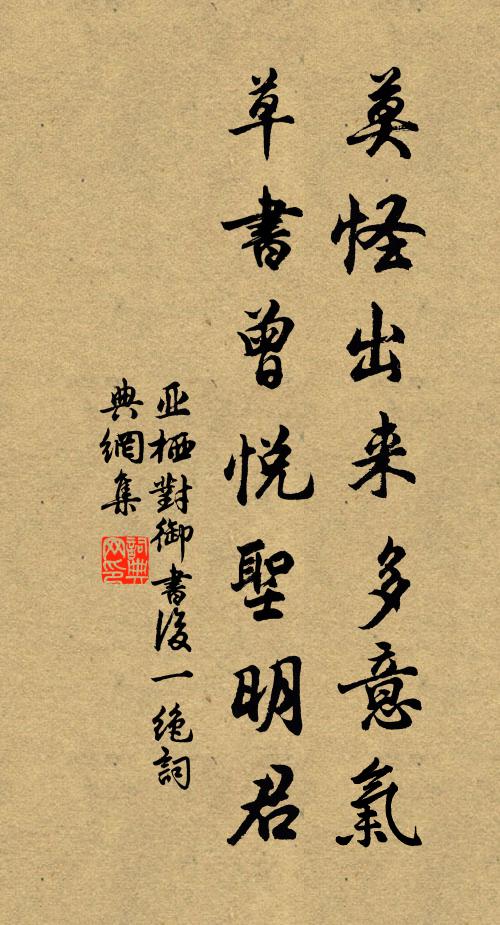 莫怪出来多意氣
草書曾悦聖明君
亚栖對御書後一絶詞
典網集
詞典网印